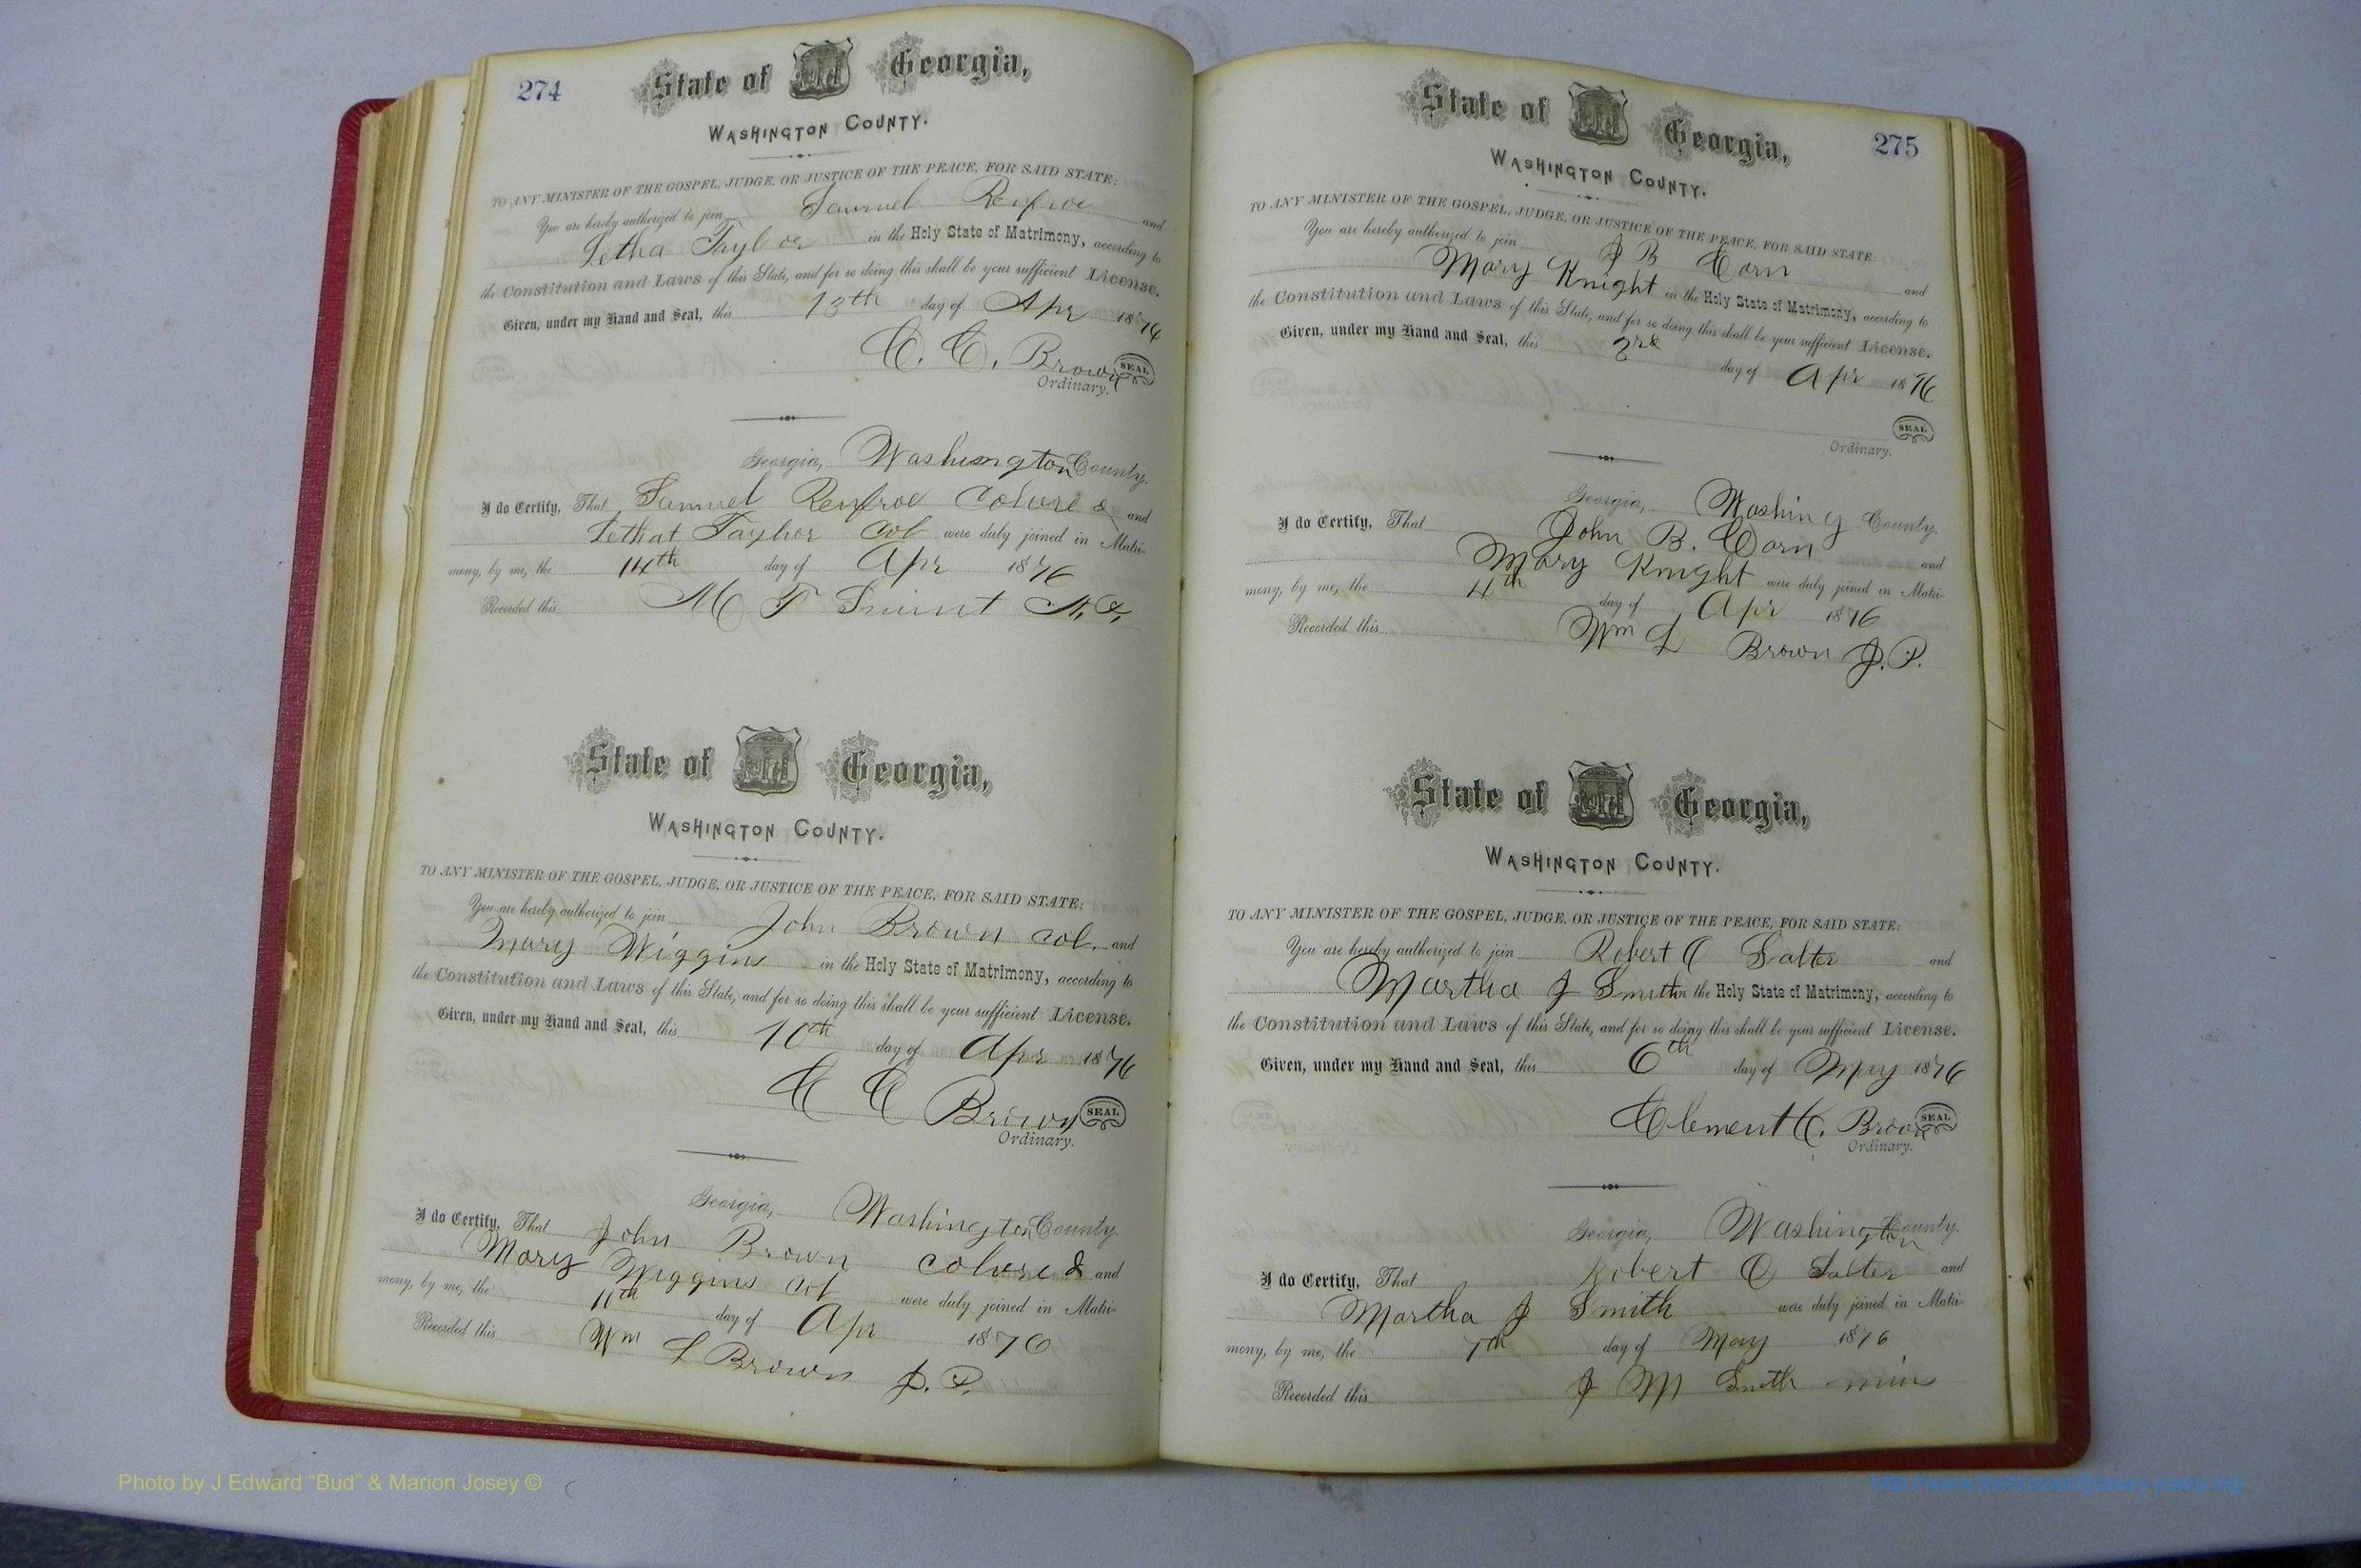 274
State of Georgia,
WASHINGTON COUNTY.
TO ANY MINISTER OF THE GOSPEL, JUDGE, OR JUSTICE OF THE PEACE, FOR SAID STATE:
You are hereby authorized to join Samuel Renfroe and
Letha Taylor in the Holy State of Matrimony, according to
the Constitution and Laws of this State, and for so doing this shall be your sufficient License.
Given, under my Hand and Seal, this 13th day of Apr 1876
C. C. Brown SEAL
Ordinary.
Georgia, Washington County.
I do Certify, That Samuel Renfroe Colored and
Lethat Taylor Col were duly joined in Matri-
mony, by me, the 14th day of Apr 1876
Recorded this M T
State of Georgia,
WASHINGTON COUNTY.
TO ANY MINISTER OF THE GOSPEL, JUDGE, OR JUSTICE OF THE PEACE, FOR SAID STATE:
You are hereby authorized to join John Brown col. and
Mary Wiggins in the Holy State of Matrimony, according to
the Constitution and Laws of this State, and for so doing this shall be your sufficient License.
Given, under my Hand and Seal, this 10th day of Apr 1876
C C Brown SEAL
Ordinary.
Georgia, Washington County.
I do Certify, That John Brown colored and
Mary Wiggins col were duly joined in Matri-
mony, by me, the day of Apr 1876
Recorded this Wm L Brown J. P.
275
State of Georgia,
WASHINGTON COUNTY.
TO ANY MINISTER OF THE GOSPEL, JUDGE, OR JUSTICE OF THE PEACE, FOR SAID STATE:
You are hereby authorized to join J B Corn and
Mary Knight in the Holy State of Matrimony, according to
the Constitution and Laws of this State, and for so doing this shall be your sufficient License.
Given, under my Hand and Seal, this 3rd day of Apr 1876
SEAL
Ordinary.
Georgia, Washing County.
I do Certify, That John B. Corn and
Mary Knight were duly joined in Matri-
mony, by me, the 4th day of Apr 1876
Recorded this Wm L Brown J. P.
State of Georgia,
WASHINGTON COUNTY.
TO ANY MINISTER OF THE GOSPEL, JUDGE, OR JUSTICE OF THE PEACE, FOR SAID STATE:
You are hereby authorized to join Robert O Salter and
Martha J Smith in the Holy State of Matrimony, according to
the Constitution and Laws of this State, and for so doing this shall be your sufficient License.
Given, under my Hand and Seal, this 6th day of May 1876
Clement C. Brown SEAL
Ordinary.
Georgia, Washington County.
I do Certify, That Robert O Salter and
Martha J Smith were duly joined in Matri-
mony, by me, the 7th day of May 1876
Recorded this J M Smith min
Photo by J Edward "Bud" & Marion Josey ©